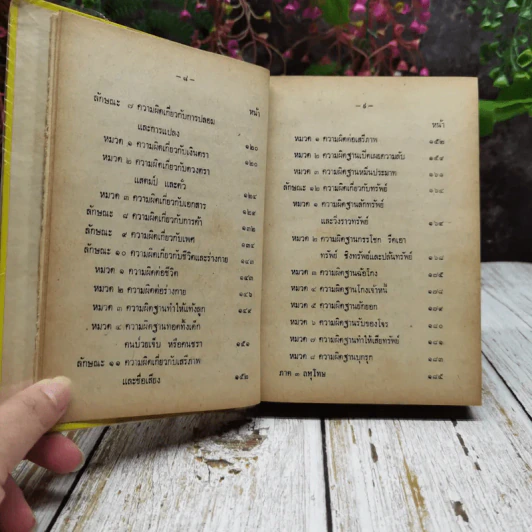 – ๘ –
หน้า
ลักษณะ ๗ ความผิดเกี่ยวกับการปลอม
และการแปลง
หมวด ๑ ความผิดเกี่ยวกับเงินตรา ๑๒๐
หมวด ๒ ความผิดเกี่ยวกับดวงตรา ๑๒๐
แสตมป์ และตั๋ว
หมวด ๓ ความผิดเกี่ยวกับเอกสาร ๑๒๔
ลักษณะ ๘ ความผิดเกี่ยวกับการค้า ๑๒๙
ลักษณะ ๙ ความผิดเกี่ยวกับเพศ
ลักษณะ ๑๐ ความผิดเกี่ยวกับชีวิตและร่างกาย ๑๔๓
หมวด ๑ ความผิดต่อชีวิต ๑๔๓
หมวด ๒ ความผิดต่อร่างกาย ๑๔๖
หมวด ๓ ความผิดฐานทำให้แท้งลูก ๑๔๙
หมวด ๔ ความผิดฐานทอดทิ้งเด็ก
คนป่วยเจ็บ หรือคนชรา ๑๕๑
ลักษณะ ๑๑ ความผิดเกี่ยวกับเสรีภาพ
และชื่อเสียง ๑๕๒
– ๙ –
หน้า
หมวด ๑ ความผิดต่อเสรีภาพ ๑๕๒
หมวด ๒ ความผิดฐานเปิดเผยความลับ
หมวด ๓ ความผิดฐานหมิ่นประมาท
ลักษณะ ๑๒ ความผิดเกี่ยวกับทรัพย์
หมวด ๑ ความผิดฐานลักทรัพย์
และวิ่งราวทรัพย์
หมวด ๒ ความผิดฐานกรรโชก รีดเอา
ทรัพย์ ชิงทรัพย์และปล้นทรัพย์ ๑๖๘
หมวด ๓ ความผิดฐานฉ้อโกง ๑๗๕
หมวด ๔ ความผิดฐานโกงเจ้าหนี้
หมวด ๕ ความผิดฐานยักยอก
หมวด ๖ ความผิดฐานรับของโจร
หมวด ๗ ความผิดฐานทำให้เสียทรัพย์
หมวด ๘ ความผิดฐานบุกรุก ๑๘๓
ภาค ๓ ลหุโทษ ๑๘๕